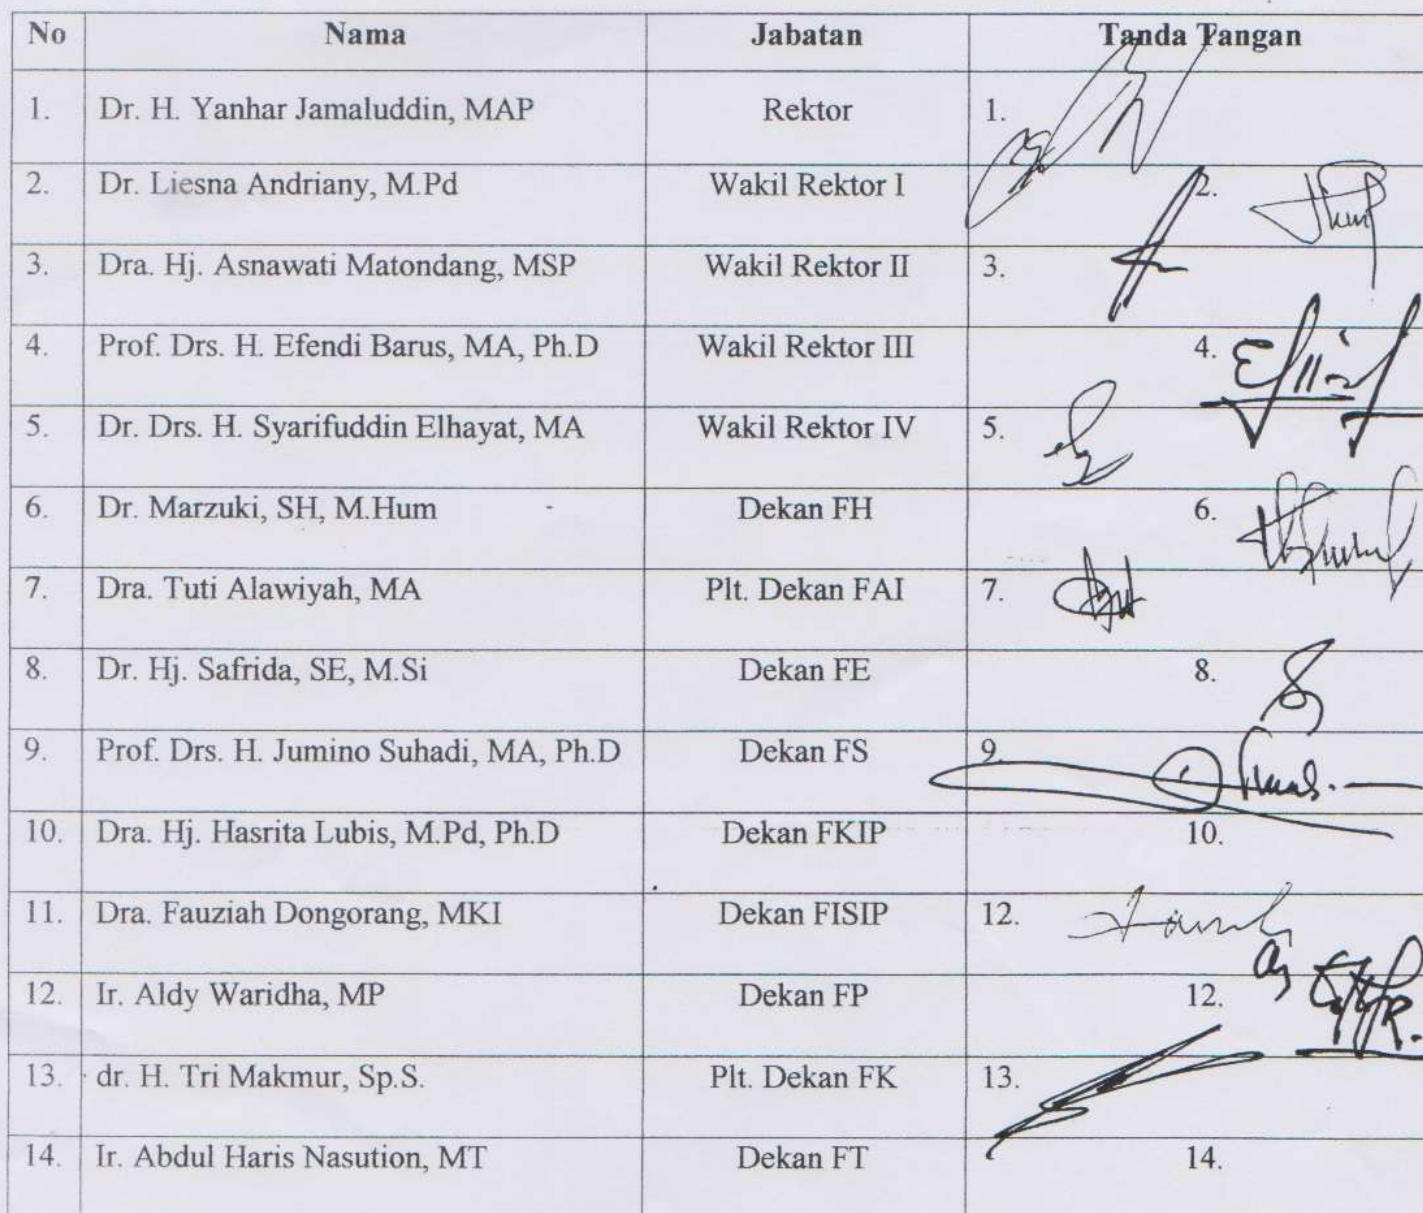 No Nama Jabatan Tanda Tangan
1. Dr. H. Yanhar Jamaluddin, MAP Rektor 1.
2. Dr. Liesna Andriany, M.Pd Wakil Rektor I 2.
3. Dra. Hj. Asnawati Matondang, MSP Wakil Rektor II 3.
4. Prof. Drs. H. Efendi Barus, MA, Ph.D Wakil Rektor III 4.
5. Dr. Drs. H. Syarifuddin Elhayat, MA Wakil Rektor IV 5.
6. Dr. Marzuki, SH, M.Hum Dekan FH 6.
7. Dra. Tuti Alawiyah, MA Plt. Dekan FAI 7.
8. Dr. Hj. Safrida, SE, M.Si Dekan FE 8.
9. Prof. Drs. H. Jumino Suhadi, MA, Ph.D Dekan FS 9.
10. Dra. Hj. Hasrita Lubis, M.Pd, Ph.D Dekan FKIP 10.
11. Dra. Fauziah Dongorang, MKI Dekan FISIP 12.
12. Ir. Aldy Waridha, MP Dekan FP 12.
13. dr. H. Tri Makmur, Sp.S. Plt. Dekan FK 13.
14. Ir. Abdul Haris Nasution, MT Dekan FT 14.